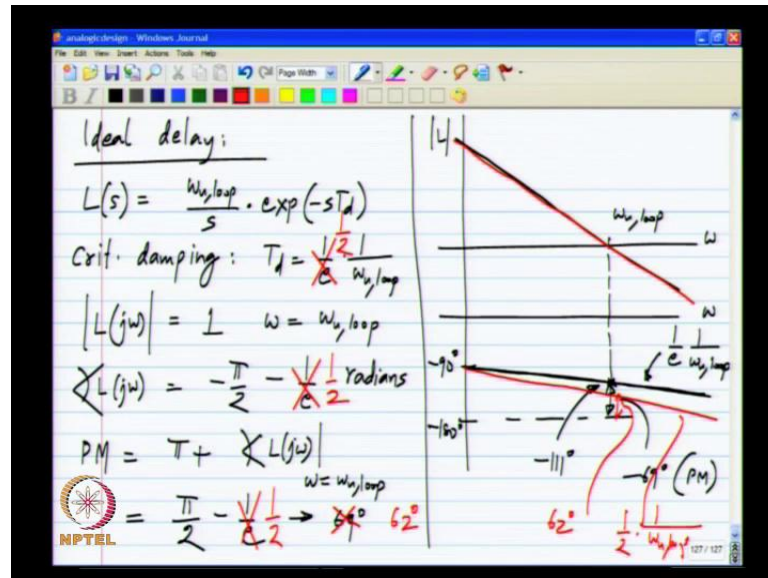 analogicdesign - Windows Journal
File Edit View Insert Actions Tools Help
Page Width
B I
Ideal delay:
L(s) = ωu,loop / s · exp(-sTd)
Crit. damping: Td = 1/e 1/2 1/ωu,loop
|L(jω)| = 1 ω = ωu,loop
∠L(jω) = -π/2 - 1/e 1/2 radians
PM = π + ∠L(jω)| ω = ωu,loop
= π/2 - 1/e 1/2 → 69° 62°
|L|
ωu,loop
ω
ω
1/e 1/ωu,loop
-90°
-180°
-111°
-69° (PM)
62°
1/2 · 1/ωu,loop
NPTEL
127 / 127